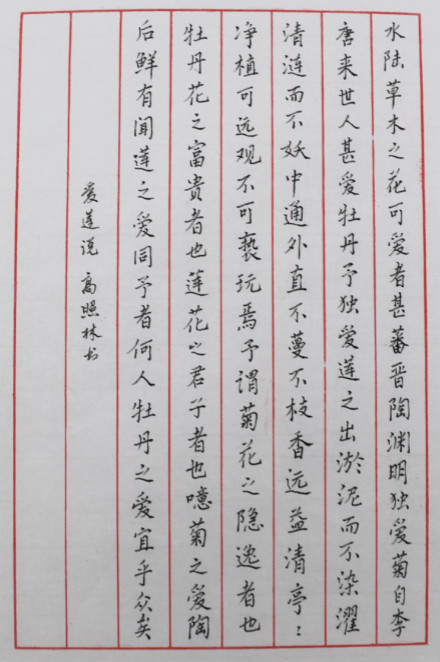 水陆草木之花可爱者甚蕃晋陶渊明独爱菊自李
唐来世人甚爱牡丹予独爱莲之出淤泥而不染濯
清涟而不妖中通外直不蔓不枝香远益清亭〻
净植可远观不可亵玩焉予谓菊花之隐逸者也
牡丹花之富贵者也莲花之君子者也噫菊之爱陶
后鲜有闻莲之爱同予者何人牡丹之爱宜乎众矣
爱莲说 高照林书